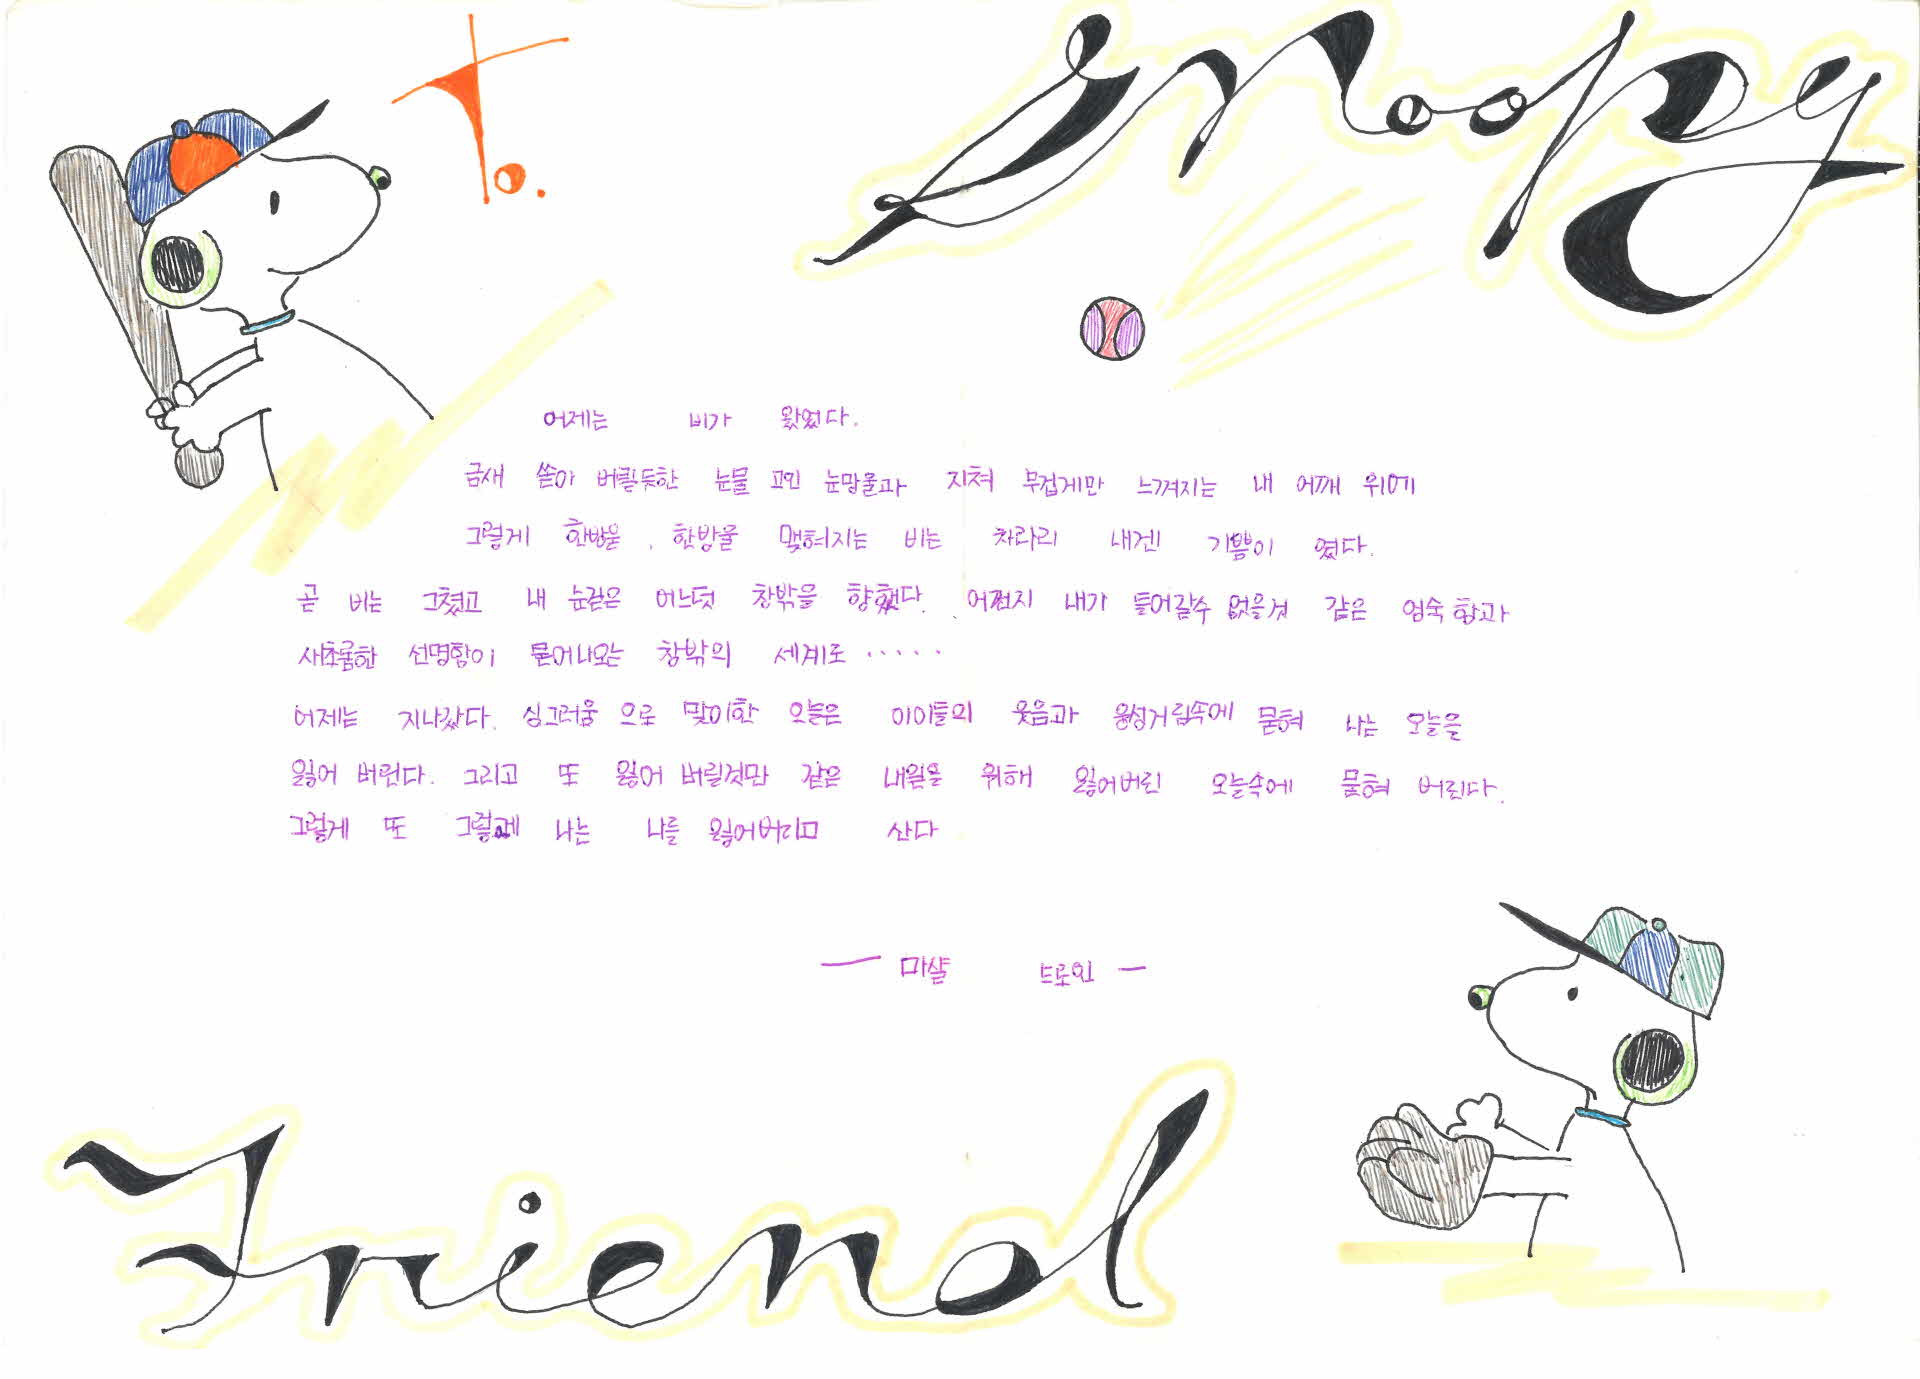 To.
Snoopy
어제는 비가 왔었다.
금새 쏟아 버릴듯한 눈물 고인 눈망울과 지쳐 무겁게만 느껴지는 내 어깨 위에
그렇게 한방울, 한방울 맺혀지는 비는 차라리 내겐 기쁨이 였다.
곧 비는 그쳤고 내 눈길은 어느덧 창밖을 향했다. 어쩐지 내가 들어갈수 없을것 같은 엄숙함과
새초롬한 선명함이 묻어나오는 창밖의 세계로 ·····
어제는 지나갔다. 싱그러움 으로 맞이한 오늘은 아이들의 웃음과 웅성거림속에 묻혀 나는 오늘을
잃어 버린다. 그리고 또 잃어 버릴것만 같은 내일을 위해 잃어버린 오늘속에 묻혀 버린다.
그렇게 또 그렇게 나는 나를 잃어버리고 산다
— 마샬 트로인 —
Friend